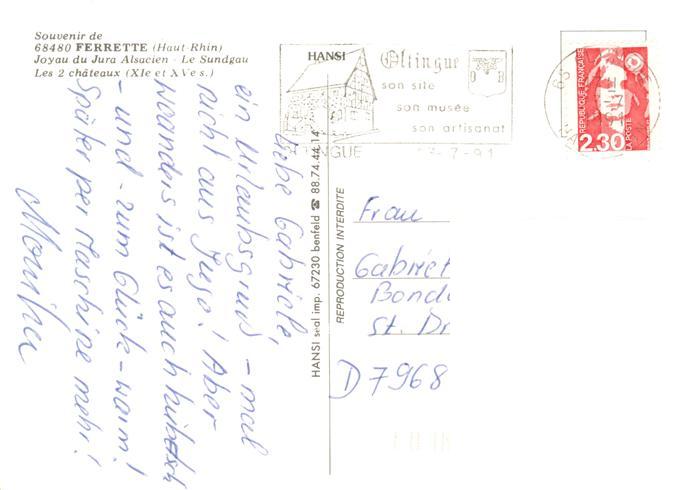 Souvenir de
68480 FERRETTE (Haut-Rhin)
Joyau du Jura Alsacien - Le Sundgau
Les 2 châteaux (XIe et XVe s.)
Liebe Gabriele,
ein Urlaubsgruß - mal
nicht aus Jugo! Aber
woanders ist es auch hübsch
- und - zum Glück - warm!
Später per Maschine mehr!
Monika
HANSI seal imp. 67230 benfeld ☎ 88.74.44.14
REPRODUCTION INTERDITE
HANSI
Oltingue
son site
son musée
son artisanat
NGUE
-7-91
68
RÉPUBLIQUE FRANÇAISE
LA POSTE
2,30
Frau
Gabriel
Bond
St. Dr
D 7968